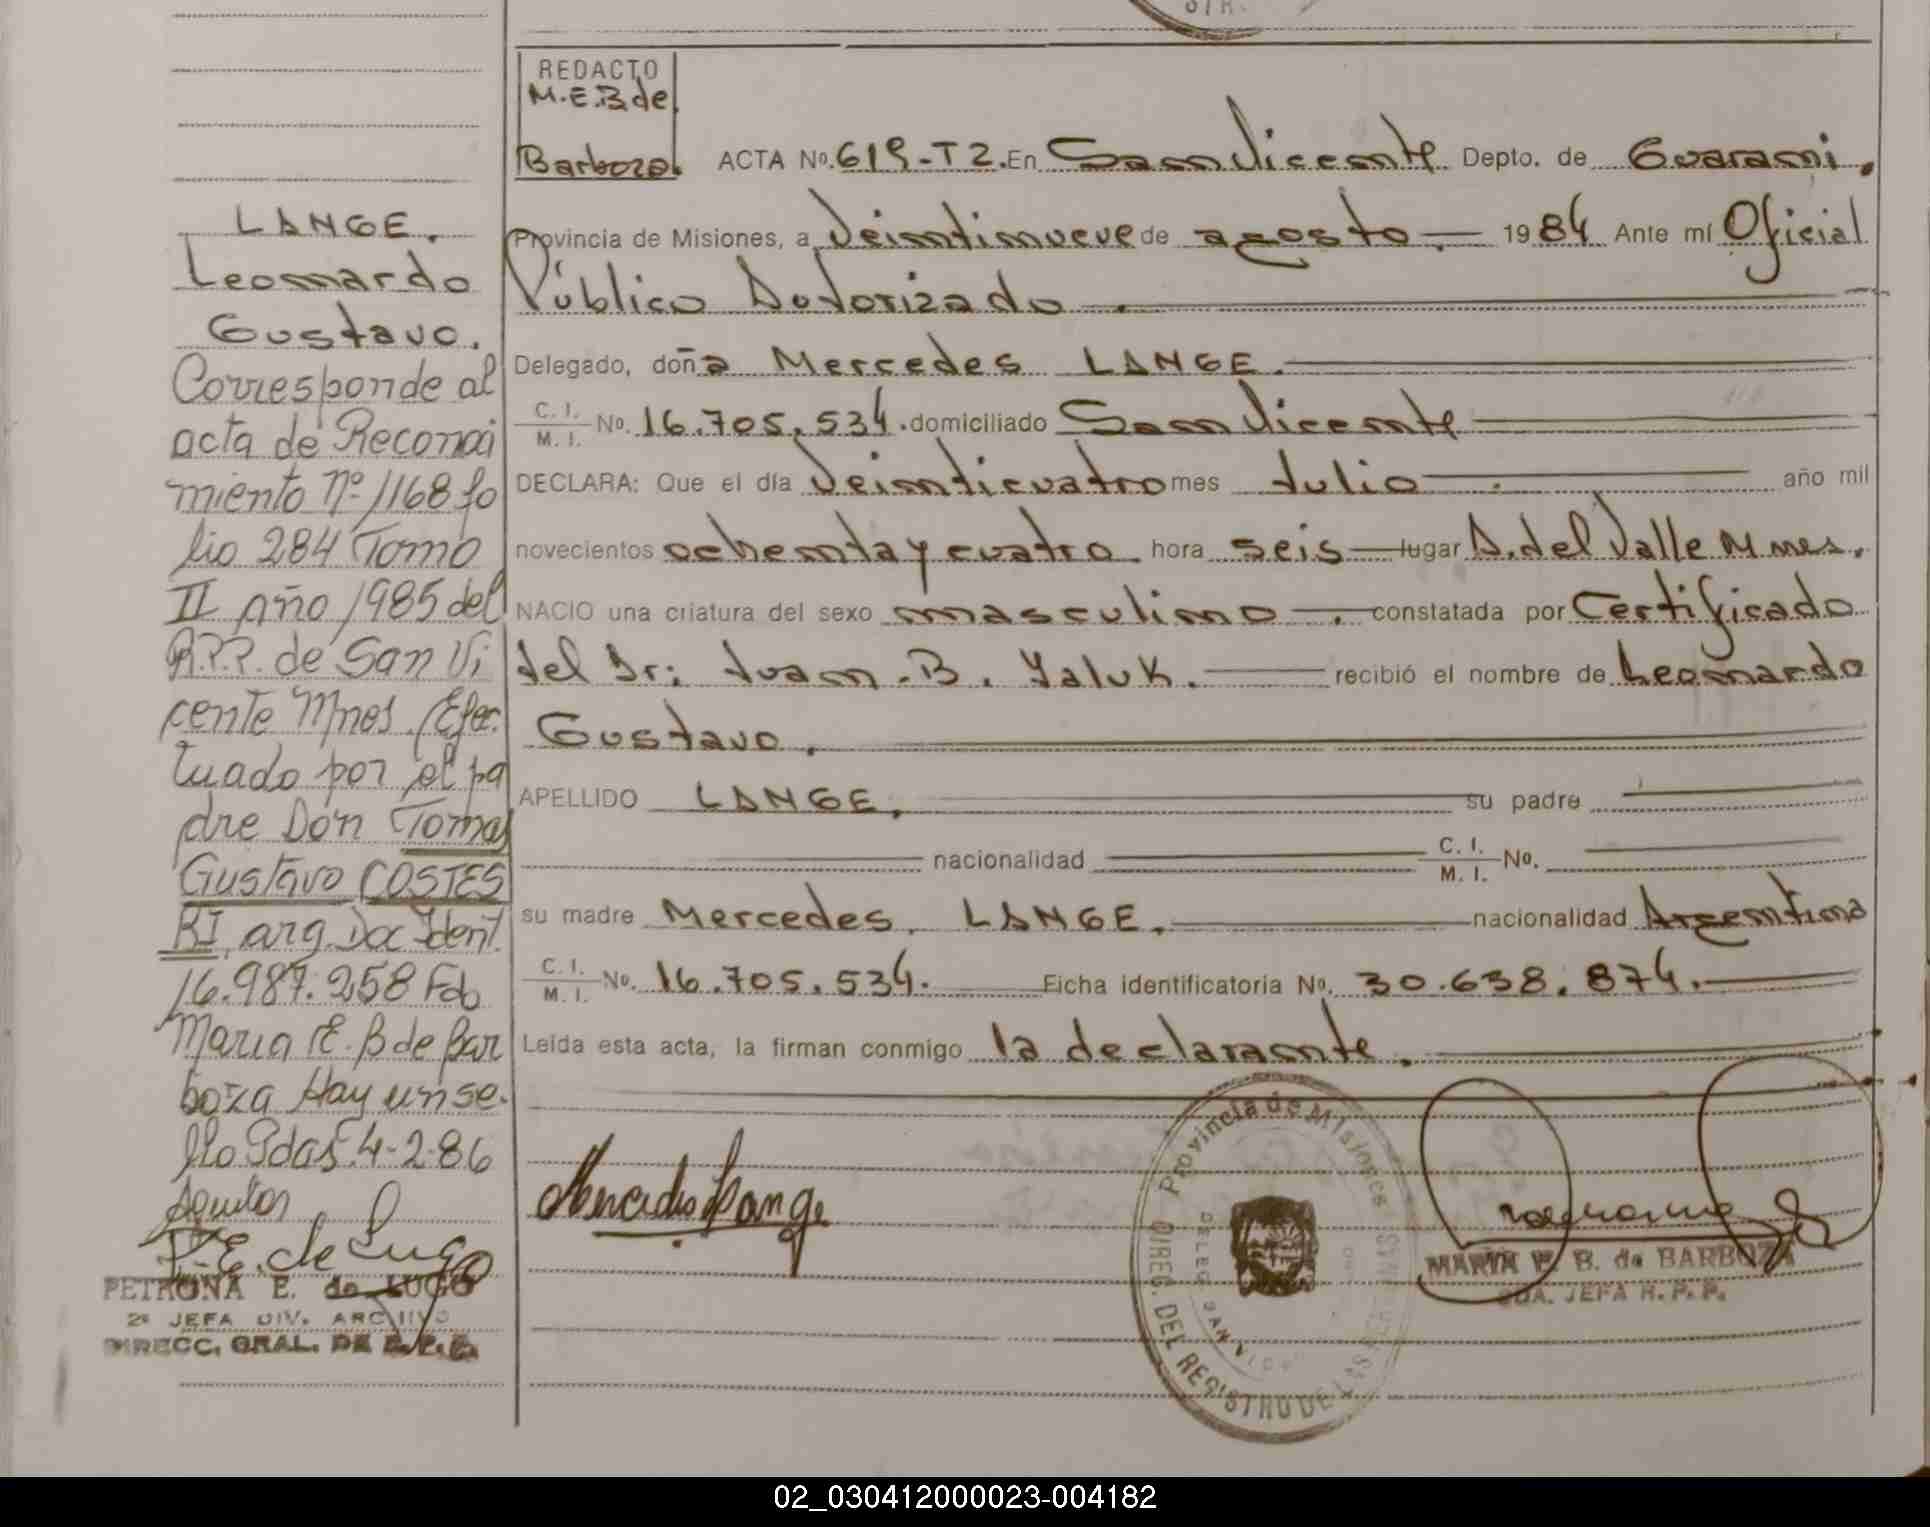 REDACTO
M.E.B. de
Barboza.
ACTA No. 619-T2. En San Vicente Depto. de Guarani.
Provincia de Misiones, a Veintinueve de agosto. 1984 Ante mí Oficial
Público Autorizado.
Delegado, doña Mercedes LANGE.
C. I.
M. I. No. 16.705.534. domiciliado San Vicente
DECLARA: Que el día Veinticuatro mes Julio. año mil
novecientos ochenta y cuatro hora seis lugar A. del Valle Mnes.
NACIO una criatura del sexo masculino. constatada por Certificado
del Dr: Juan. B. Yaluk. recibió el nombre de Leonardo
Gustavo.
APELLIDO LANGE, su padre
nacionalidad C. I.
M. I. No.
su madre Mercedes. LANGE. nacionalidad Argentina
C. I.
M. I. No. 16.705.534. Ficha identificatoria No. 30.638.874.
Leída esta acta, la firman conmigo la declarante.
Mercedes Lange
Provincia de Misiones
DIREC. DEL REGISTRO DE LAS PERSONAS
DELEG. SAN VICENTE
MARIA E. B. de BARBOZA
JEFA R. P. P.
LANGE.
Leonardo
Gustavo.
Corresponde al
acta de Reconoci
miento Nº 1168 fo
lio 284 Tomo
II Año 1985 del
R.P.P. de San Vi
cente Mnes. Efec
tuado por el pa
dre Don Tomas
Gustavo COSTES
RI, arg. Doc Ident.
16.987.258 Fdo
Maria E. B de Bar
boza Hay un se.
llo Pdas. 4-2-86
P. E. de Lugo
PETRONA E. de LUGO
2ª JEFA DIV. ARCHIVO
DIRECC. GRAL. DE R.P.P.
02_030412000023-004182